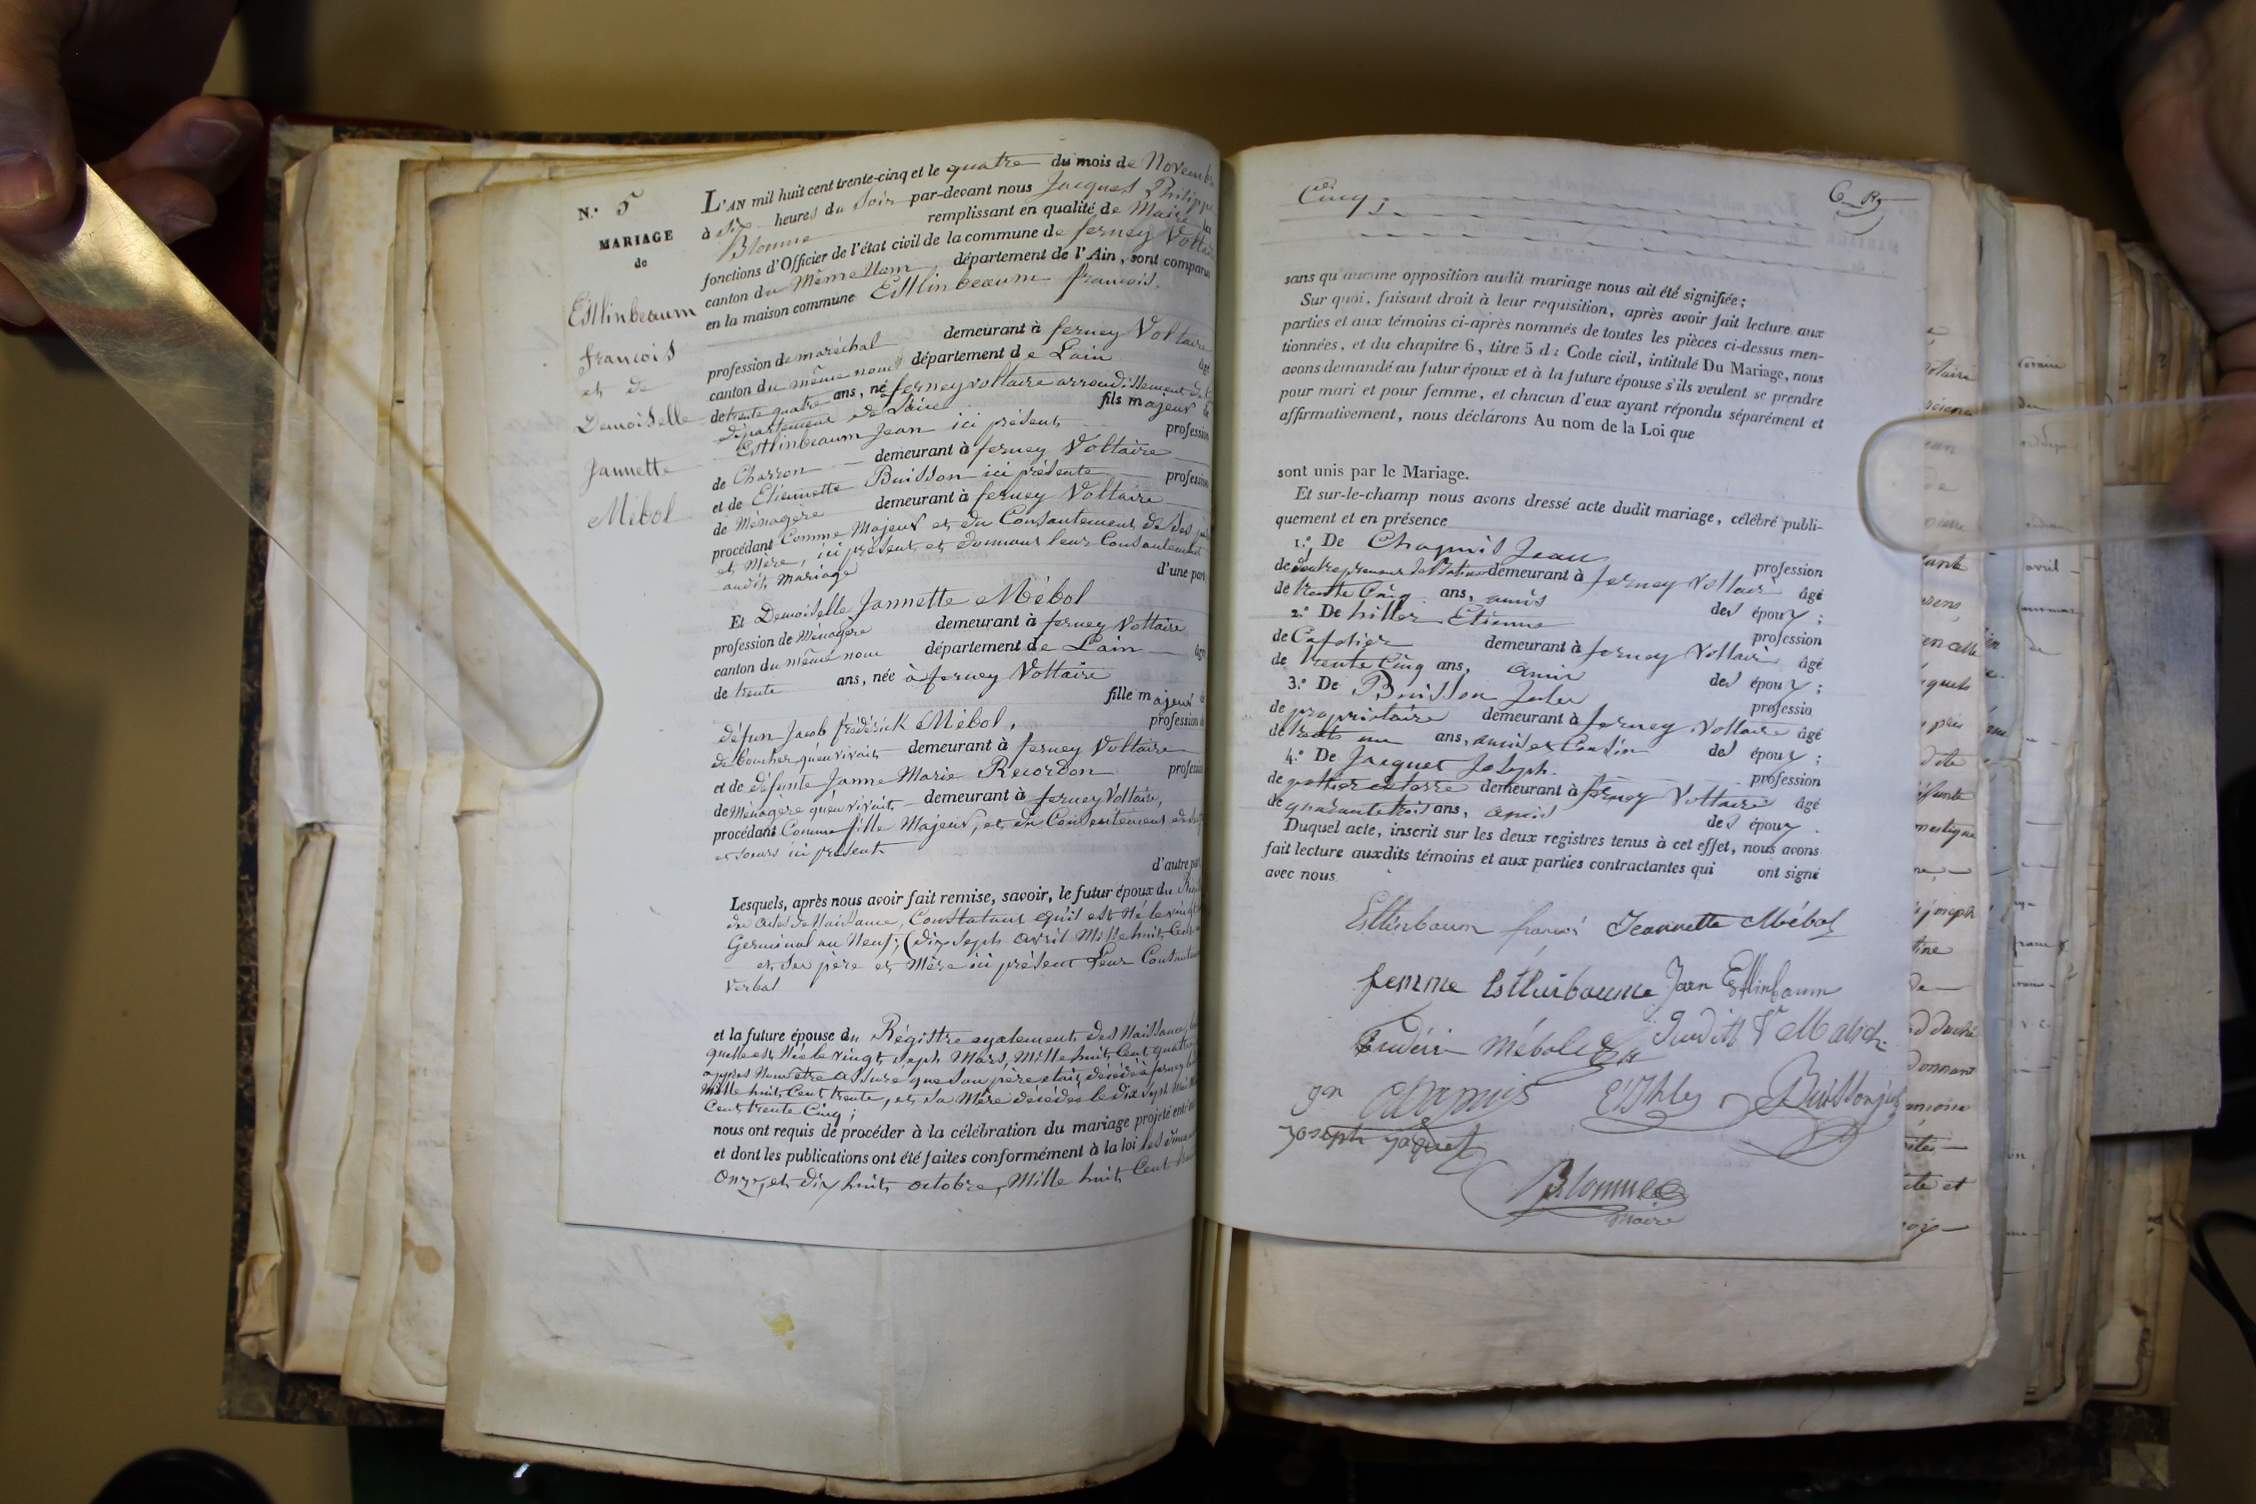 N.° 5
MARIAGE
de
Estlinbeaum
françois
et de
Demoiselle
Jannette
Mébol
L'AN mil huit cent trente-cinq et le quatre du mois de Novembre
à six heures du Soir par-devant nous Jacques Philippe
Blonme remplissant en qualité de Maire les
fonctions d'Officier de l'état civil de la commune de ferney Voltaire
canton du Même Nom département de l'Ain, sont comparus
en la maison commune Estlinbeaum françois.
profession de maréchal demeurant à ferney Voltaire
canton du même nom département de Lain âgé
de trente quatre ans, né ferney voltaire arrondissement de
département de Lain fils majeur de
Estlinbeaum Jean ici présent profession
de Charron demeurant à ferney Voltaire
et de Etiennette Buisson ici présente profession
de Ménagère demeurant à ferney Voltaire
procédant Comme Majeur et du Consantement de ses
et Mère, ici présent et donnant leur Consantement
audit Mariage d'une part
Et Demoiselle Jannette Mébol
profession de Ménagère demeurant à ferney Voltaire
canton du même nom département de Lain âgé
de trente ans, née à ferney Voltaire
fille majeur
défun Jacob frédérick Mébol, profession
de boucher qu'en vivait demeurant à ferney Voltaire
et de défunte Janne Marie Recordon profession
de Ménagère qu'en vivait demeurant à ferney Voltaire,
procédant Comme fille Majeur, et du Consentement
et soeurs ici présent
d'autre part
Lesquels, après nous avoir fait remise, savoir, le futur époux du
des actes de Naissance, Constatant qu'il est Né le vingt
Germinal an Neuf; (dix Sept avril Mille huit Cent
et ses père et Mère ici présent Leur Consantement
verbal
et la future épouse du Régistre egalement des Naissances
qu'elle est Née le vingt sept Mars, Mille huit Cent quatre
apprès Nous être assuré que son père était décédé à ferney
Mille huit Cent trente, et sa Mère décédée le dix Sept
Cent trente Cinq;
nous ont requis de procéder à la célébration du mariage projeté entr'eux
et dont les publications ont été faites conformément à la loi les dimanches
Onze et dix huit octobre, Mille huit Cent
Cinq;
sans qu'aucune opposition audit mariage nous ait été signifiée;
Sur quoi, faisant droit à leur requisition, après avoir fait lecture aux
parties et aux témoins ci-après nommés de toutes les pièces ci-dessus men-
tionnées, et du chapitre 6, titre 5 du Code civil, intitulé Du Mariage, nous
avons demandé au futur époux et à la future épouse s'ils veulent se prendre
pour mari et pour femme, et chacun d'eux ayant répondu séparément et
affirmativement, nous déclarons Au nom de la Loi que
sont unis par le Mariage.
Et sur-le-champ nous avons dressé acte dudit mariage, célébré publi-
quement et en présence
1.° De Chapuis Jean profession
demeurant à ferney Voltair âgé
de trente Cinq ans, amis des époux;
2.° De hitler Etienne profession
de Cafetier demeurant à ferney Voltair âgé
de trente Cinq ans, amis des époux;
3.° De Buisson Jules professio
de propriétaire demeurant à ferney Voltaire âgé
de trente un ans, amis et Cousin des époux;
4.° De Jacquet Joseph. profession
de pottier de terre demeurant à ferney Voltaire âgé
de quarante trois ans, amis des époux.
Duquel acte, inscrit sur les deux registres tenus à cet effet, nous avons
fait lecture auxdits témoins et aux parties contractantes qui ont signé
avec nous
Estlinbaum françoi Jeannette Mébol
femme Estlinbaume Jean Estlinbaum
Mébold Judith
Chapuis Buisson
Joseph Jaquet
Blonme
Maire